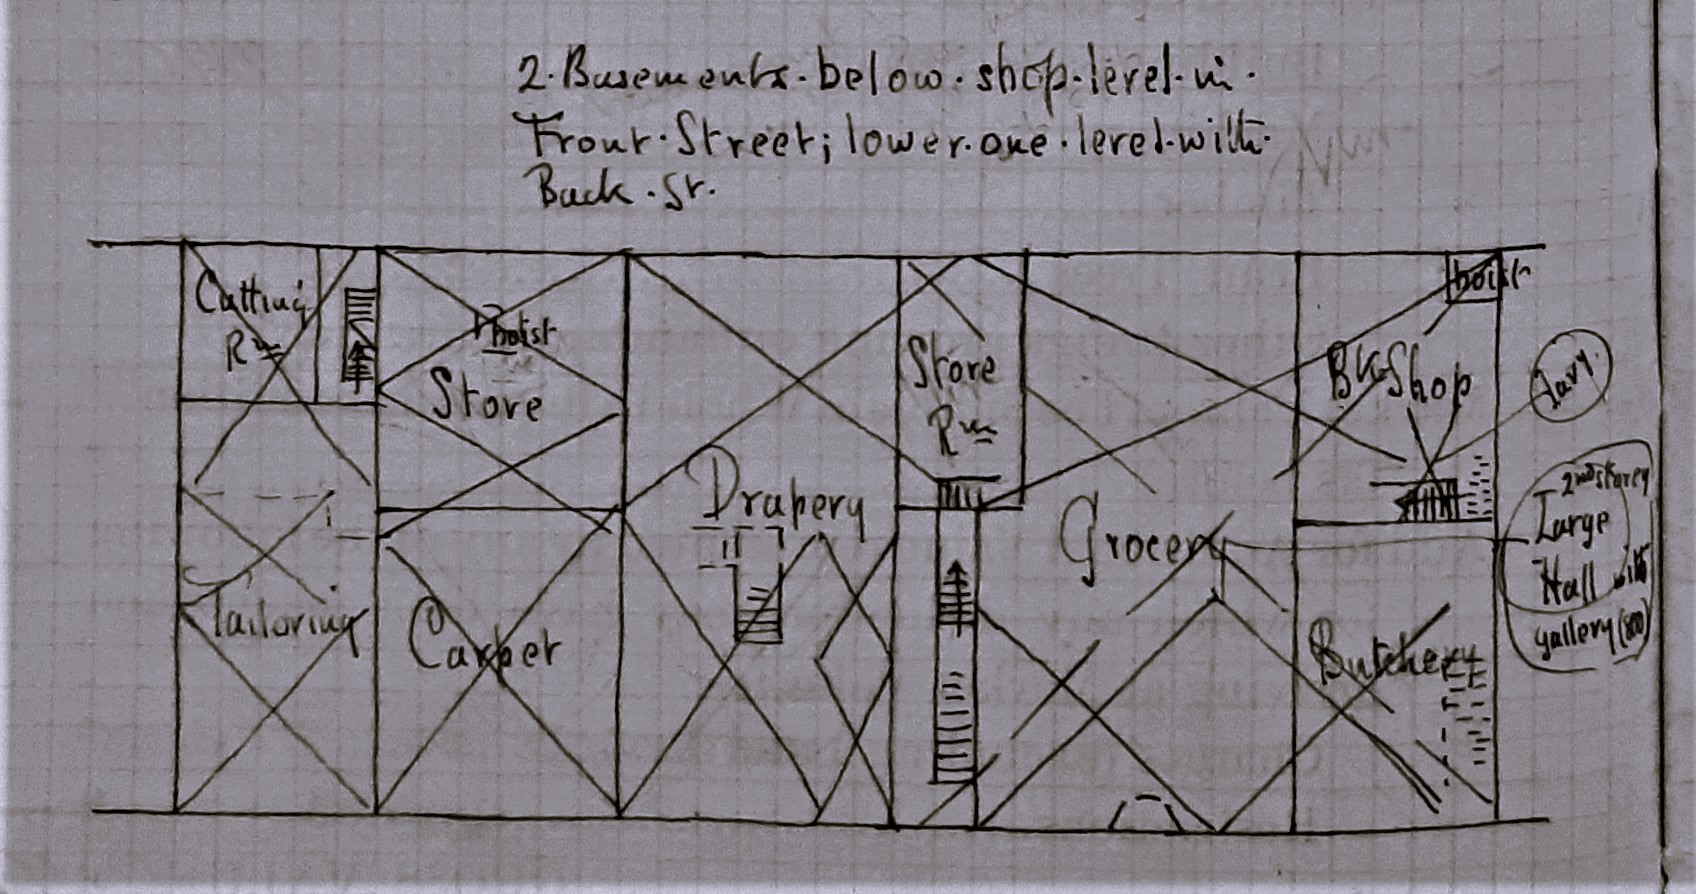 2. Basements. below. shop. level. in.
Front. Street; lower. one. level. with.
Back. St.
Cutting
Rm
hoist
Store
Store
Rm
hoist
Bk Shop
Lavy.
Drapery
Grocery
2nd storey
Large
Hall with
gallery (800)
Tailoring
Carpet
Butchery